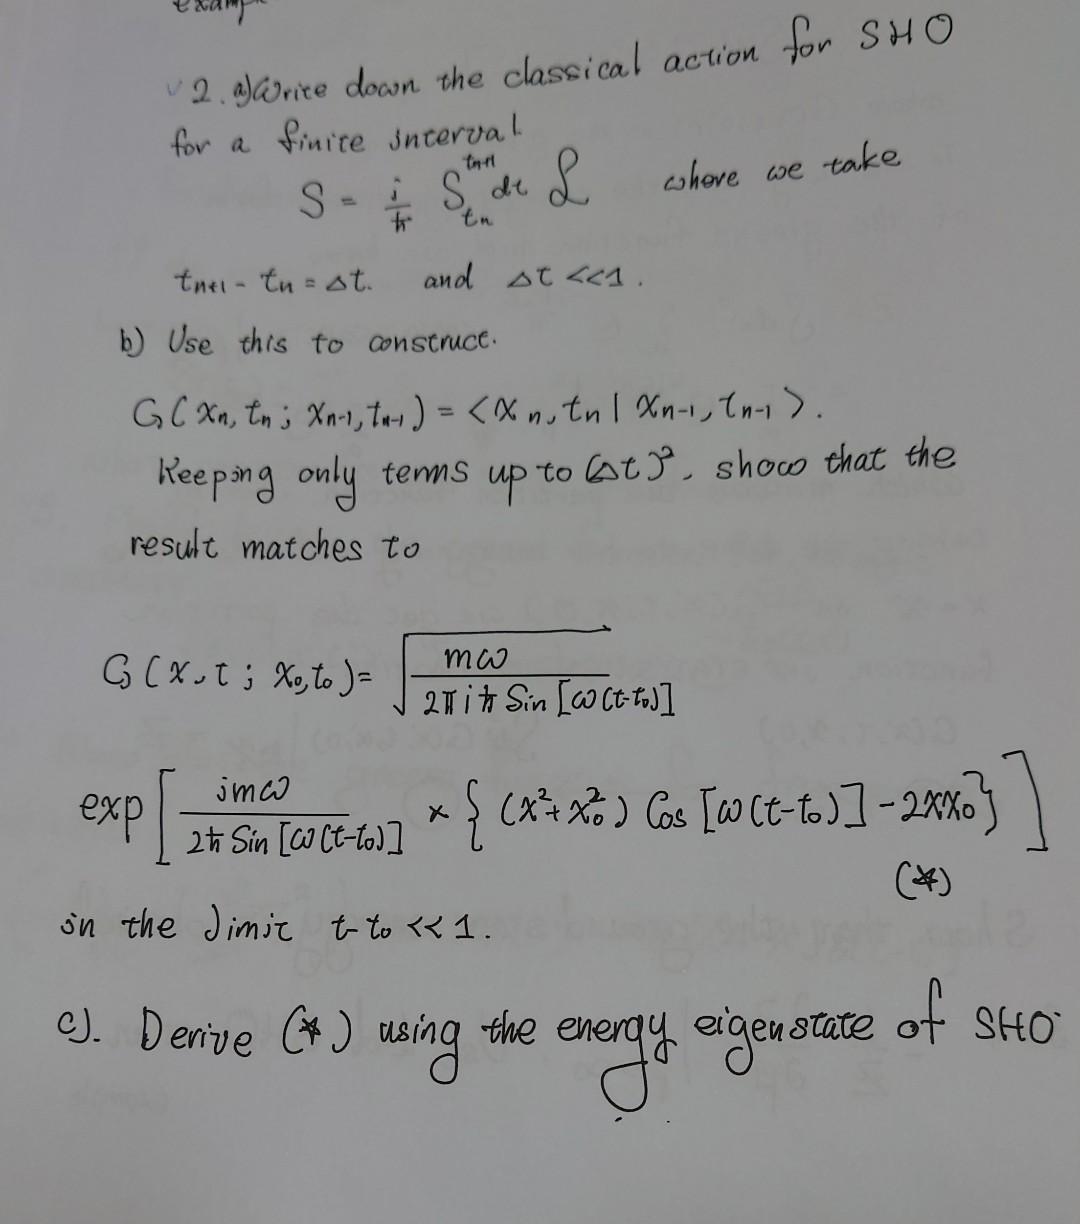 2. a) Write down the classical action for SHO
for a finite interval
S = i/ħ ∫_{tn}^{tn+1} dt ℒ where we take
tn+1 - tn = Δt. and Δt <<1.
b) Use this to construct.
G(xn, tn; xn-1, tn-1) = <xn, tn | xn-1, tn-1>.
Keeping only terms up to (Δt)², show that the
result matches to
G(x,t; x0,t0) = √(mω / 2πiħ Sin[ω(t-t0)])
exp[ imω / 2ħ Sin[ω(t-t0)] × { (x²+x0²) Cos[ω(t-t0)] - 2xx0 } ]
(*)
in the limit t-t0 <<1.
c). Derive (*) using the energy eigenstate of SHO